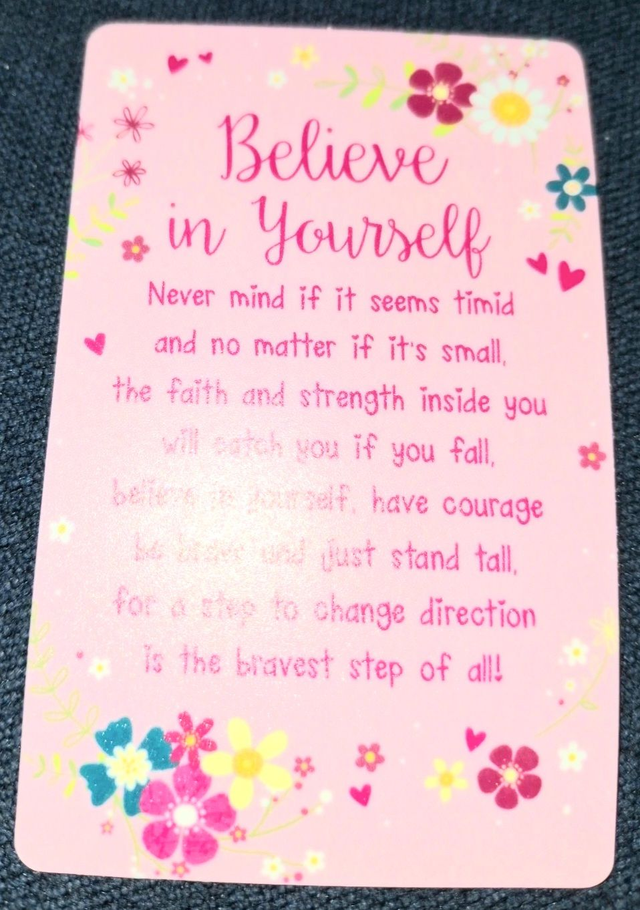 Believe
in Yourself
Never mind if it seems timid
and no matter if it's small,
the faith and strength inside you
will catch you if you fall,
believe in yourself, have courage
be brave and just stand tall,
for a step to change direction
is the bravest step of all!